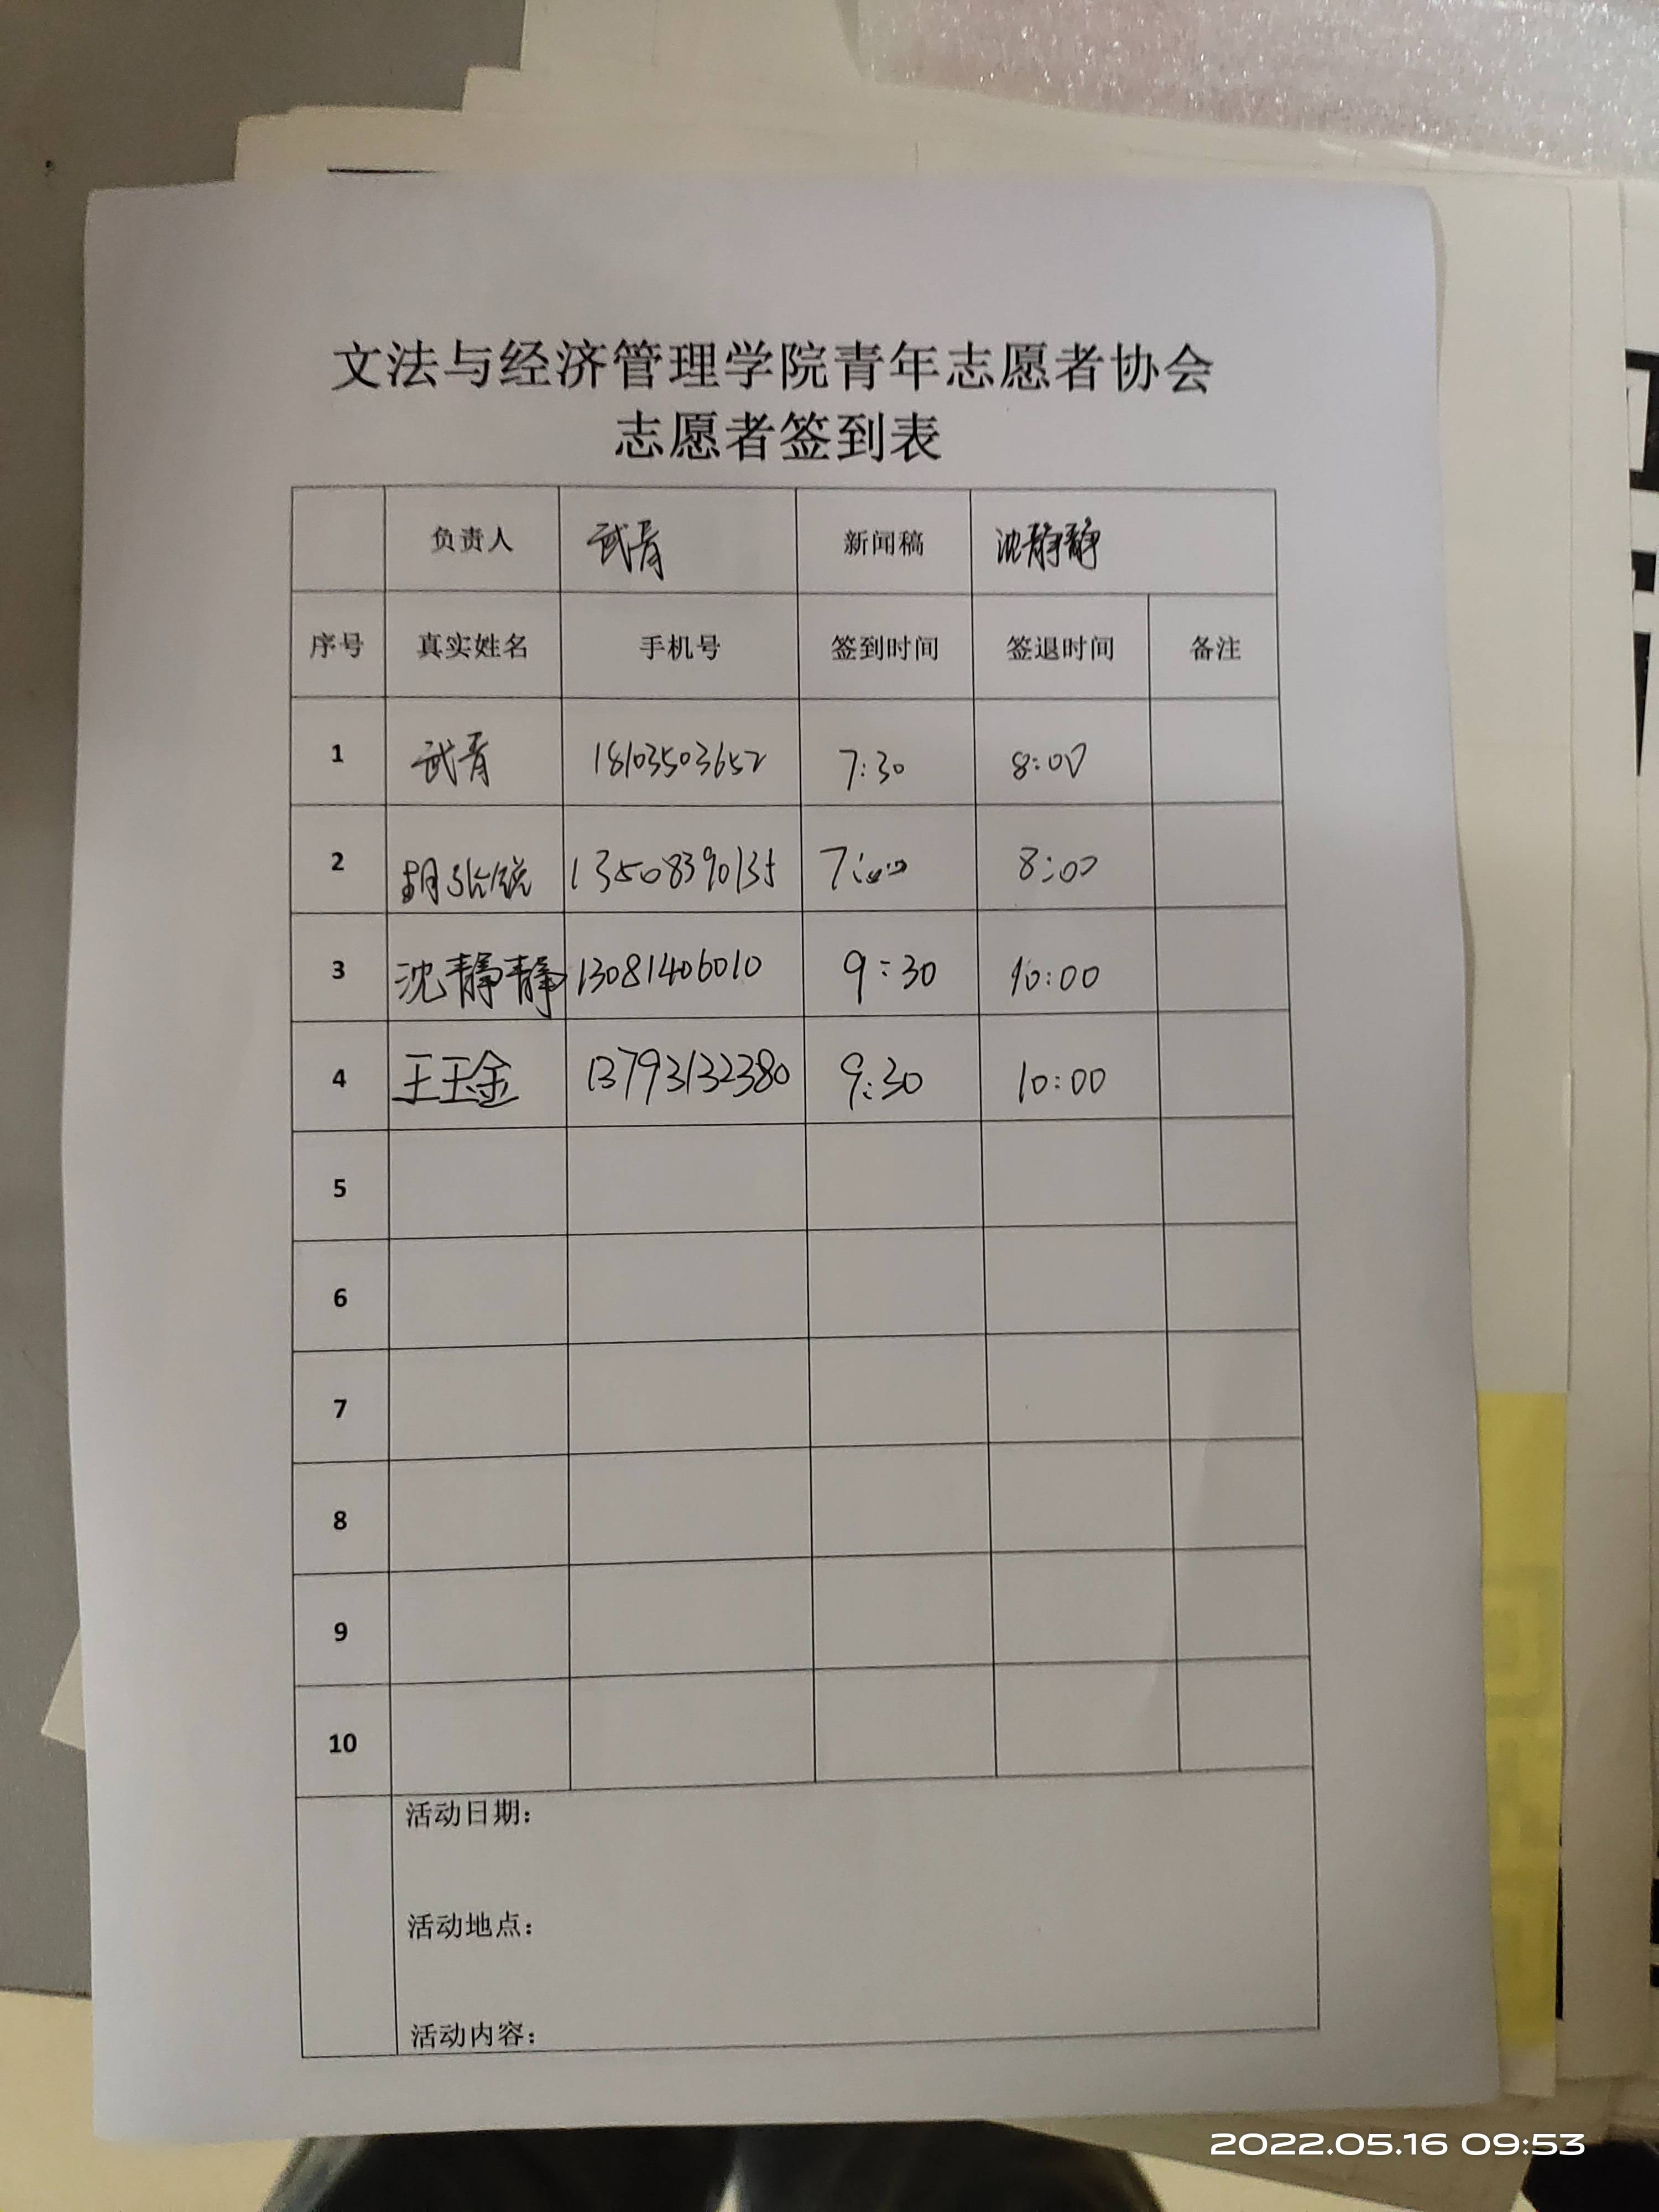 文法与经济管理学院青年志愿者协会
志愿者签到表
负责人 武青 新闻稿 沈静静
序号 真实姓名 手机号 签到时间 签退时间 备注
1 武青 18103503652 7:30 8:00
2 胡 13508390135 8:00
3 沈静静 13081406010 9:30 10:00
4 王玉金 13793132380 9:30 10:00
5
6
7
8
9
10
活动日期:
活动地点:
活动内容:
2022.05.16 09:53